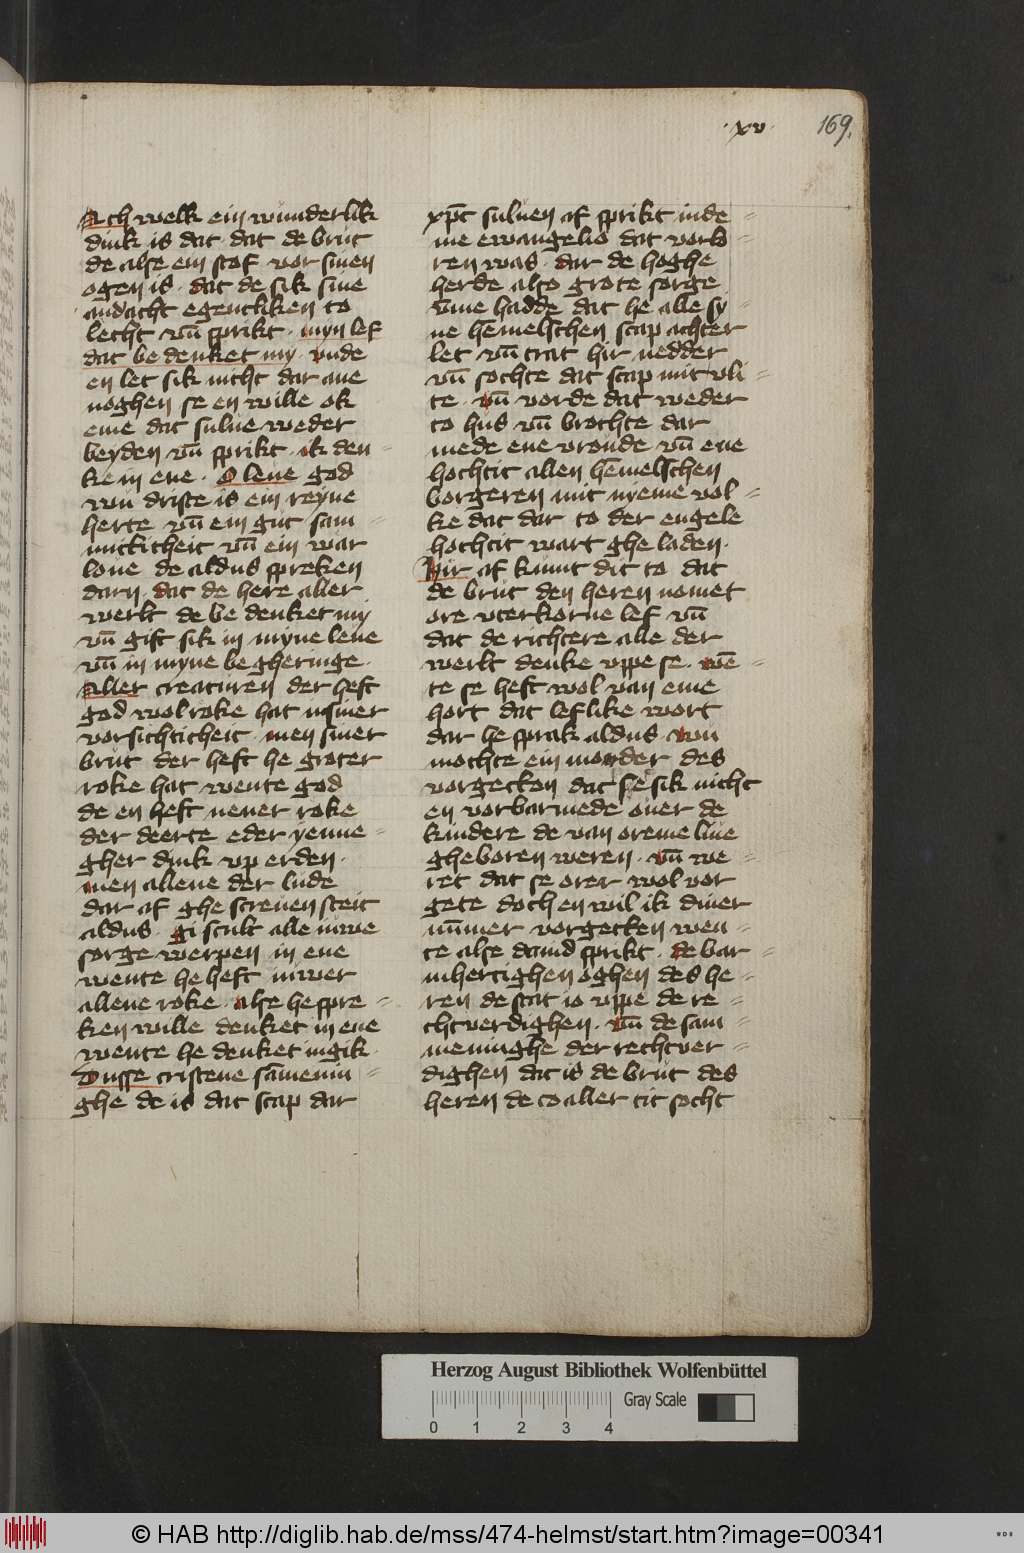 ·xv·
169.
Ach welk ein wunderlik
dink is dat · dat de brut
de alse ein stof vor sinen
ogen is · dat de sik sine
andacht egentliken to
lecht vn̄ sprikt · myn lef
dat be denket my · vnde
en let sik nicht dar ane
noghen se en wille ok
eme dat sulue weder
beyden vn̄ sprikt · ik den-
ke in ene · O leue god
wu driste is ein reyne
herte vn̄ ein gut sam-
mitticheit vn̄ ein war
loue de aldus spreken
darn · dat de here aller
werlt de be denket my
vn̄ gift sik in myne leue
vn̄ in myne be gheringe ·
Aller creaturen der heft
god wol roke hat in siner
vorsichticheit · men siner
brut der heft he groter
roke hat wente god
de en heft nener roke
der deerte eder yenne-
gher dink vp erden ·
men allene der lude
dar af ghe screuen steit
aldus · gi scult alle iuwe
sorge werpen in ene
wente he heft iuwer
allene roke · alse he spre-
ken wille denket in ene
wente he denket in gik ·
Dusse cristene sāmenin-
ghe de is dat scap dar
xp̄c suluen af sprikt inde-
me ewangelio dat vorlo-
ren was · dar de hoghe
herde also grote sorge
v̄me hadde dat he alle sy-
ne hēmelschen scap achter
let vn̄ trat hir nedder
vn̄ sochte dat scap mit vli-
te · vn̄ vorde dat weder
to hus vn̄ brochte dar
mede ene vroude vn̄ ene
hochtit allen hēmelschen
borgeren mit nyeme vol-
ke dat dar to der engele
hochtit wart ghe laden ·
Hir af kumt dit to dat
de brut den heren nomet
ore vterkorne lef vn̄
dat de richtere alle der
werlt denke vppe se · wē-
te se heft wol van eme
hort dat leflike wort
dar he sprak aldus · wu
mochte ein moder des
vorgetten dat se sik nicht
en vorbarmede ouer de
kindere de van oreme liue
gheboren weren · vn̄ we-
ret dat se orer wol vor
gete doch en wil ik diner
nūmer vorgetten wen-
te alse dauid sprikt · de bar-
mhertighen oghen des he-
ren de stat io vppe de re-
chtverdighen · vn̄ de sam-
meninghe der rechtver-
dighen dat is de brut des
heren de to aller tit socht
Herzog August Bibliothek Wolfenbüttel
Gray Scale
0 1 2 3 4
© HAB http://diglib.hab.de/mss/474-helmst/start.htm?image=00341